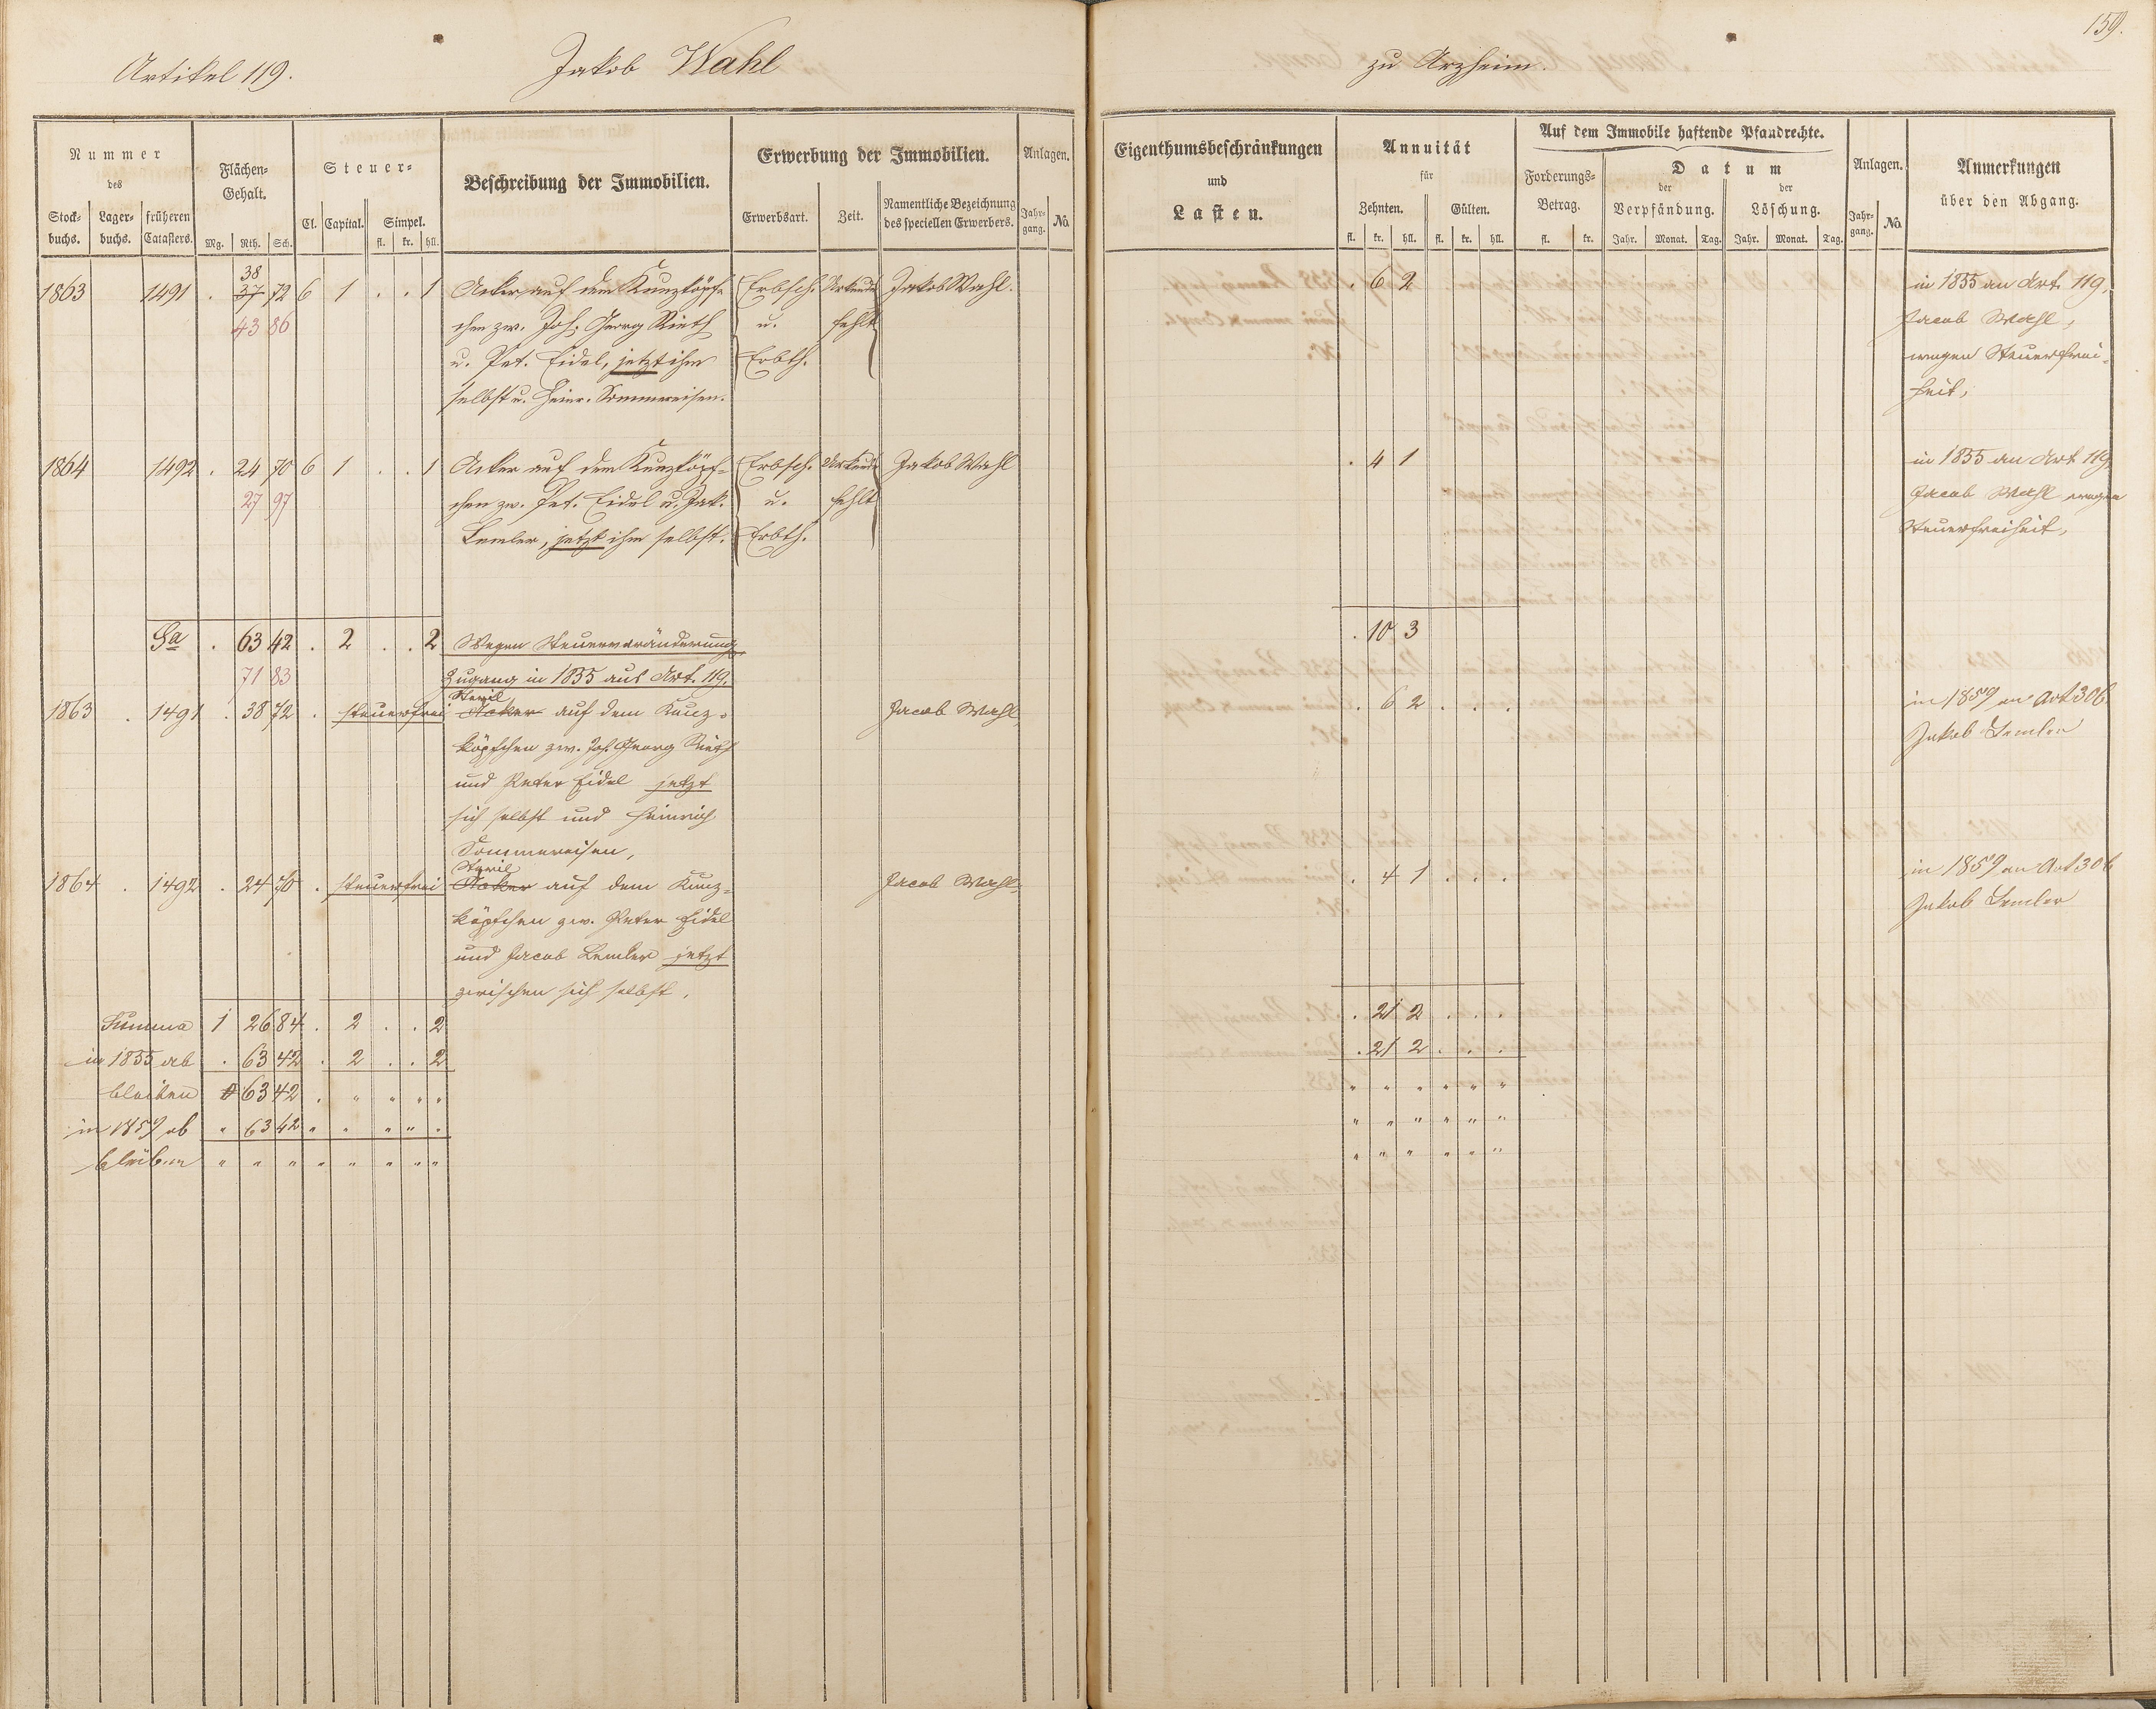 159.
Artikel 119. Jakob Wahl zu Arzheim.
Nummer des
Stock- buchs. Lager- buchs. früheren Catasters.
Flächen- Gehalt.
Mg. Rth. Sch.
Steuer-
Cl. Capital. Simpel.
fl. kr. hll.
Beschreibung der Immobilien.
Erwerbung der Immobilien.
Erwerbsart. Zeit. Namentliche Bezeichnung des speciellen Erwerbers.
Anlagen.
Jahr- gang. No.
Eigenthumsbeschränkungen und Lasten.
Annuität für
Zehnten. Gülten.
fl. kr. hll. fl. kr. hll.
Auf dem Immobile haftende Pfandrechte.
Forderungs- Betrag.
fl. kr.
Datum
der Verpfändung. der Löschung.
Jahr. Monat. Tag. Jahr. Monat. Tag.
Anlagen.
Jahr- gang. No.
Anmerkungen über den Abgang.
38
1863 1491 . 37 72 6 1 . . 1 Acker auf dem Kunzköpf- Erbsch. Urkunde Jakob Wahl. . 6 2 in 1855 an Art. 119,
43 86 chen zw. Joh. Georg Rieth u. fehlt Jacob Wahl,
u. Pet. Eidel, jetzt ihm Erbth. wegen Steuerfrei-
selbst u. Heinr. Sommereisen. heit,
1864 1492 . 24 70 6 1 . . 1 Acker auf dem Kunzköpf- Erbsch. Urkunde Jakob Wahl . 4 1 in 1855 an Art 119
27 97 chen zw. Pet. Eidel u. Jak. u. fehlt Jacob Wahl wegen
Lemler, jetzt ihm selbst. Erbth. Steuerfreiheit,
Sa . 63 42 . 2 . . 2 Wegen Steuerveränderung . 10 3
71 83 Zugang in 1855 aus Art. 119.
Steril
1863 . 1491 . 38 72 . steuerfrei Acker auf dem Kunz- Jacob Wahl, . 6 2 . . . in 1859 an Art 306
köpfchen zw. Joh. Georg Rieth Jakob Lemler
und Peter Eidel jetzt
sich selbst und Heinrich
Sommereisen,
Steril
1864 . 1492 . 24 70 . steuerfrei Acker auf dem Kunz- Jacob Wahl, . 4 1 . . . in 1859 an Art 306
köpfchen zw. Peter Eidel Jakob Lemler
und Jacob Lemler jetzt
zwischen sich selbst,
Summa 1 26 84 . 2 . . 2 . 21 2 . . .
in 1855 ab . 63 42 . 2 . . 2 . 21 2 . . .
bleiben 63 42 . " " " " " " " " " "
in 1859 ab " 63 42 " " " " " " " " " " "
bleiben " " " " " " " " " " " " " "